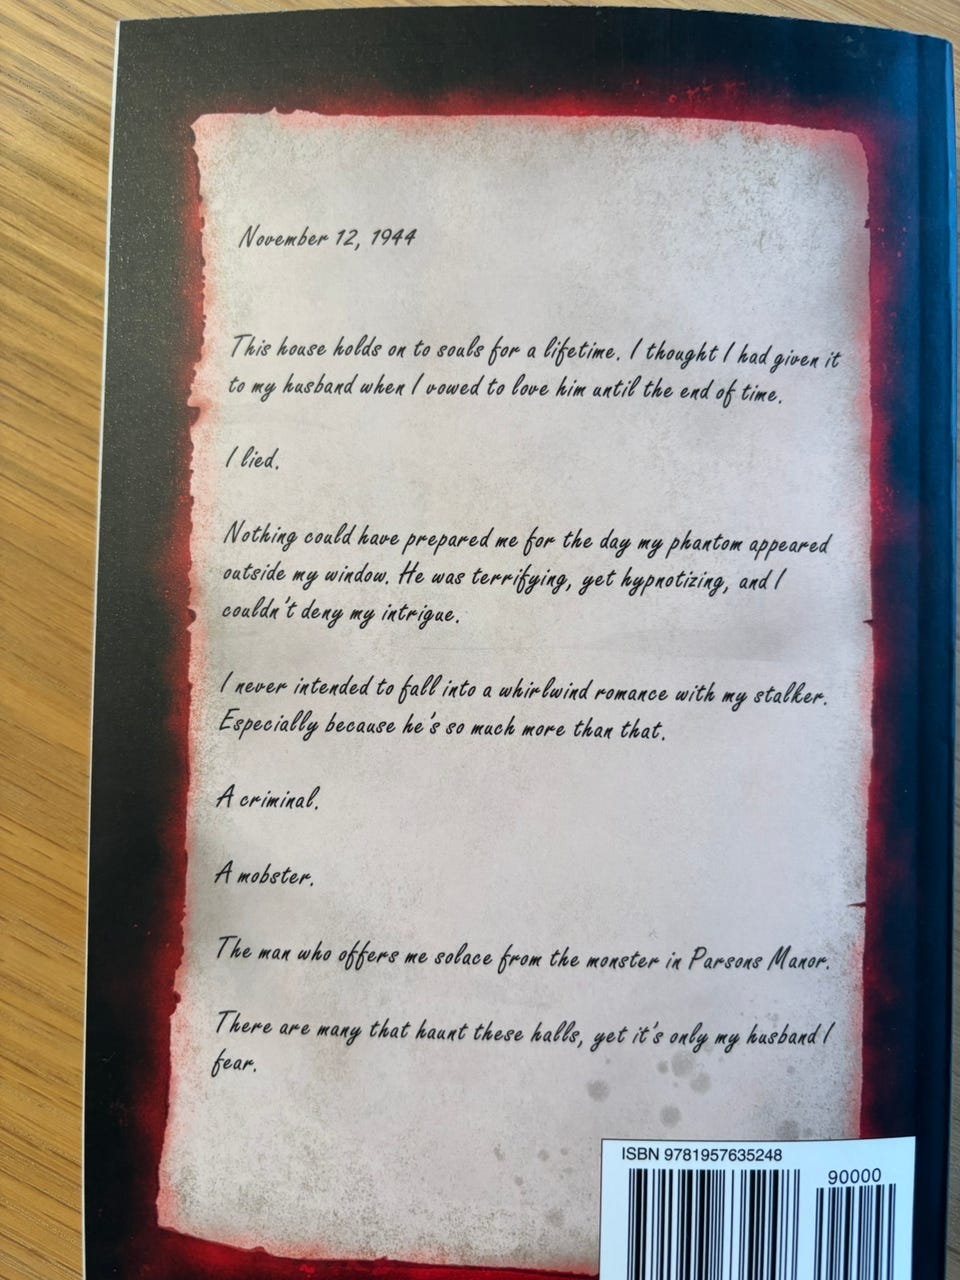 November 12, 1944
This house holds on to souls for a lifetime. I thought I had given it
to my husband when I vowed to love him until the end of time.
I lied.
Nothing could have prepared me for the day my phantom appeared
outside my window. He was terrifying, yet hypnotizing, and I
couldn't deny my intrigue.
I never intended to fall into a whirlwind romance with my stalker.
Especially because he's so much more than that.
A criminal.
A mobster.
The man who offers me solace from the monster in Parsons Manor.
There are many that haunt these halls, yet it's only my husband I
fear.
ISBN 9781957635248
90000